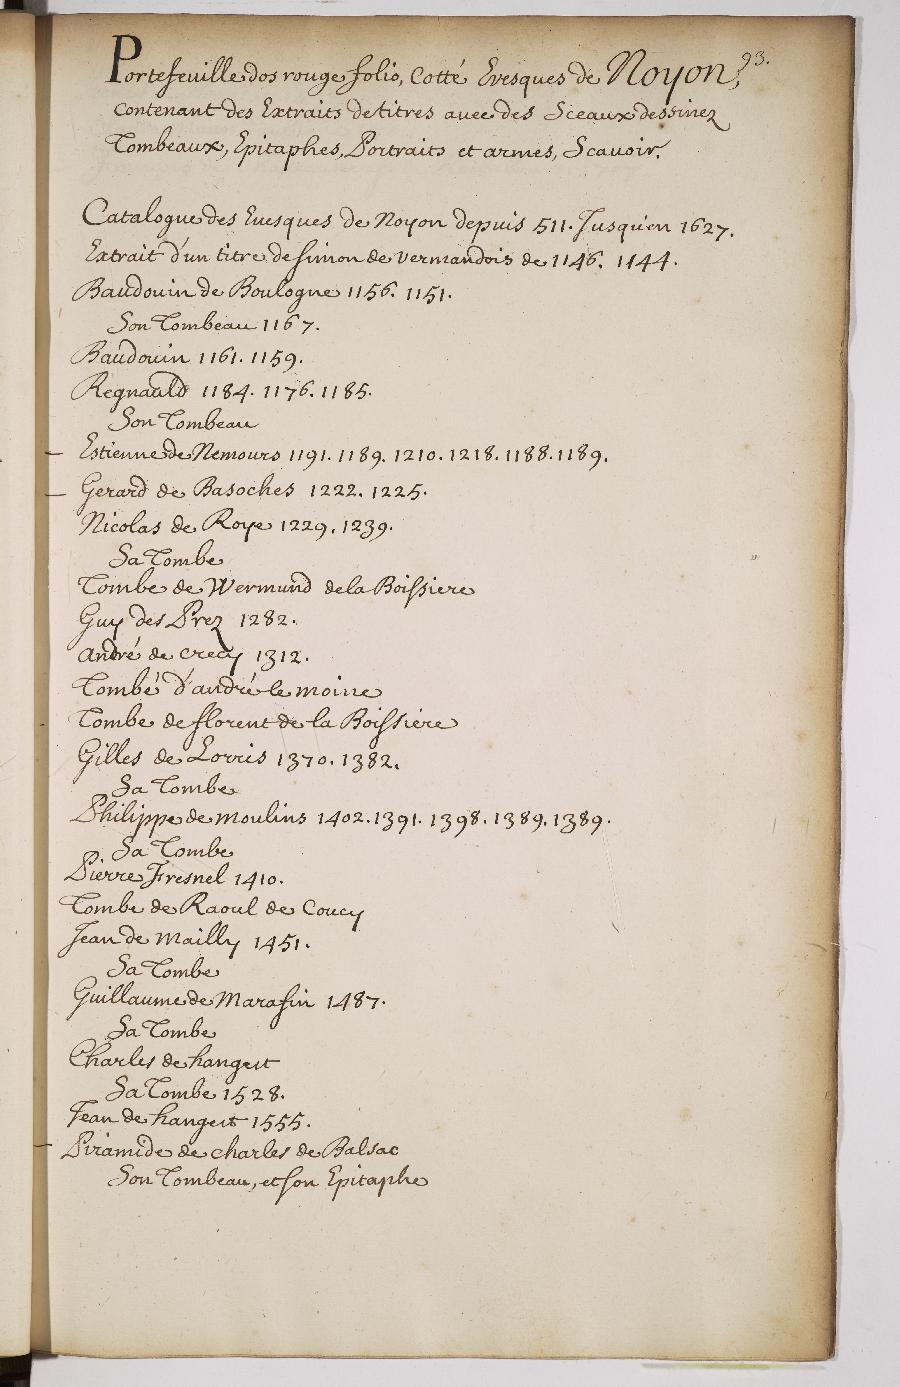 93.
Portefeuille dos rouge folio, Cotté Evesques de Noyon,
contenant des Extraits de titres avec des Sceaux dessinez
Tombeaux, Epitaphes, Portraits et armes, Scavoir.
Catalogue des Evesques de Noyon depuis 511. Jusqu'en 1627.
Extrait d'un titre de simon de vermandois de 1146. 1144.
Baudouin de Boulogne 1156. 1151.
Son Tombeau 1167.
Baudouin 1161. 1159.
Regnauld 1184. 1176. 1185.
Son Tombeau
Estienne de Nemours 1191. 1189. 1210. 1218. 1188. 1189.
Gerard de Basoches 1222. 1225.
Nicolas de Roye 1229. 1239.
Sa Tombe
Tombe de Wermund de la Boissiere
Guy des Prez 1282.
André de Crecy 1312.
Tombe d'andré le moine
Tombe de florent de la Boissiere
Gilles de Lorris 1370. 1382.
Sa Tombe
Philippe de moulins 1402. 1391. 1398. 1389. 1389.
Sa Tombe
Pierre Fresnel 1410.
Tombe de Raoul de Coucy
Jean de Mailly 1451.
Sa Tombe
Guillaume de Marafin 1487.
Sa Tombe
Charles de hangest
Sa Tombe 1528.
Jean de hangest 1555.
Piramide de charles de Balsac
Son Tombeau, et son Epitaphe